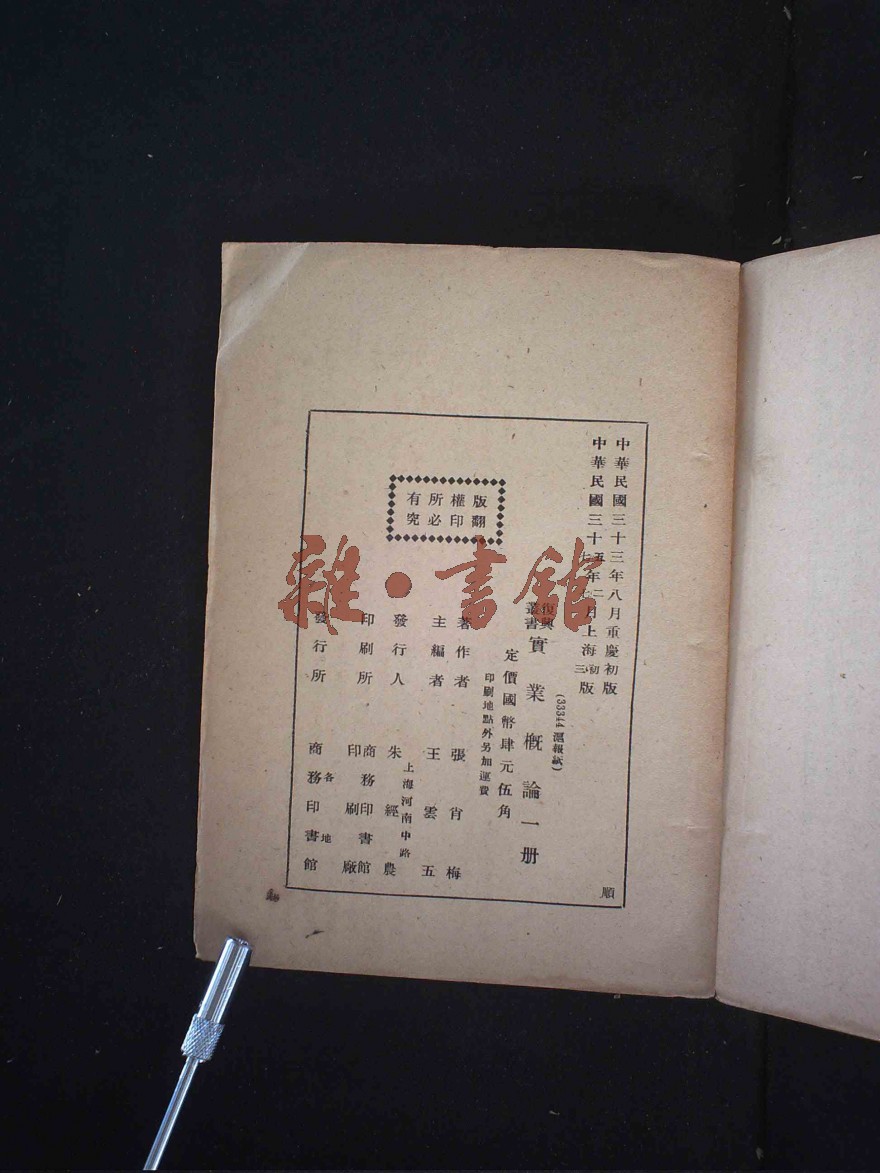 中華民國三十三年八月重慶初版
中華民國三十五年二月上海初版
三
(33344滬報紙)
復興叢書
實業概論一册
定價國幣肆元伍角
印刷地點外另加運費
版權所有
翻印必究
著作者 張肖梅
主編者 王雲五
上海河南中路
發行人 朱經農
印刷所 商務印書館印刷廠
發行所 各地商務印書館
順
雜·書館